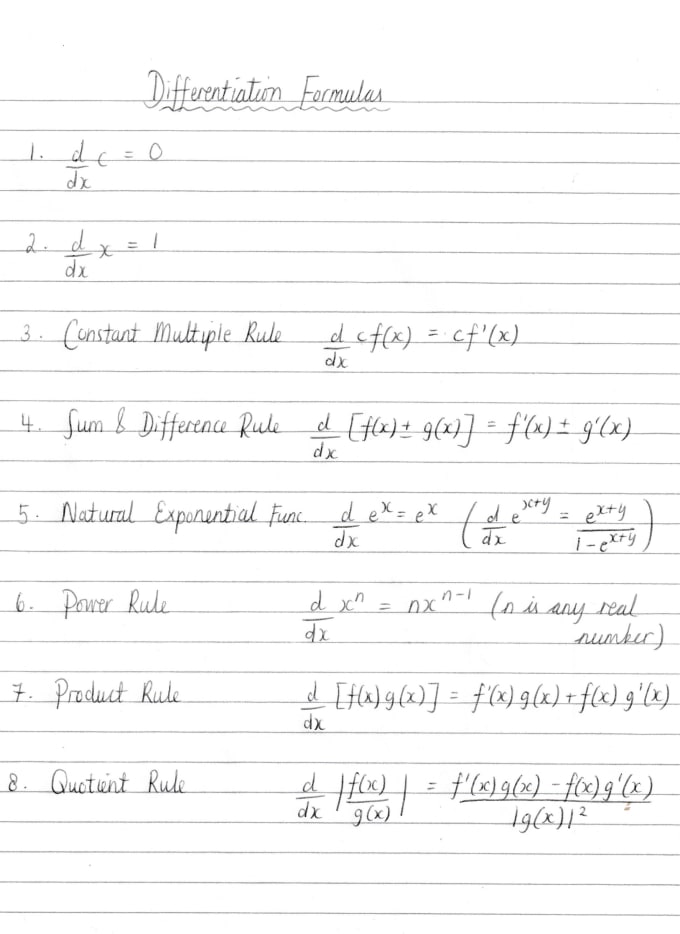 Differentiation Formulas
1. d/dx c = 0
2. d/dx x = 1
3. Constant Multiple Rule d/dx cf(x) = cf'(x)
4. Sum & Difference Rule d/dx [f(x) ± g(x)] = f'(x) ± g'(x)
5. Natural Exponential Func. d/dx e^x = e^x (d/dx e^(x+y) = e^(x+y)/(1-e^(x+y)))
6. Power Rule d/dx x^n = nx^(n-1) (n is any real
number)
7. Product Rule d/dx [f(x)g(x)] = f'(x)g(x) + f(x)g'(x)
8. Quotient Rule d/dx |f(x)/g(x)| = (f'(x)g(x) - f(x)g'(x))/|g(x)|²